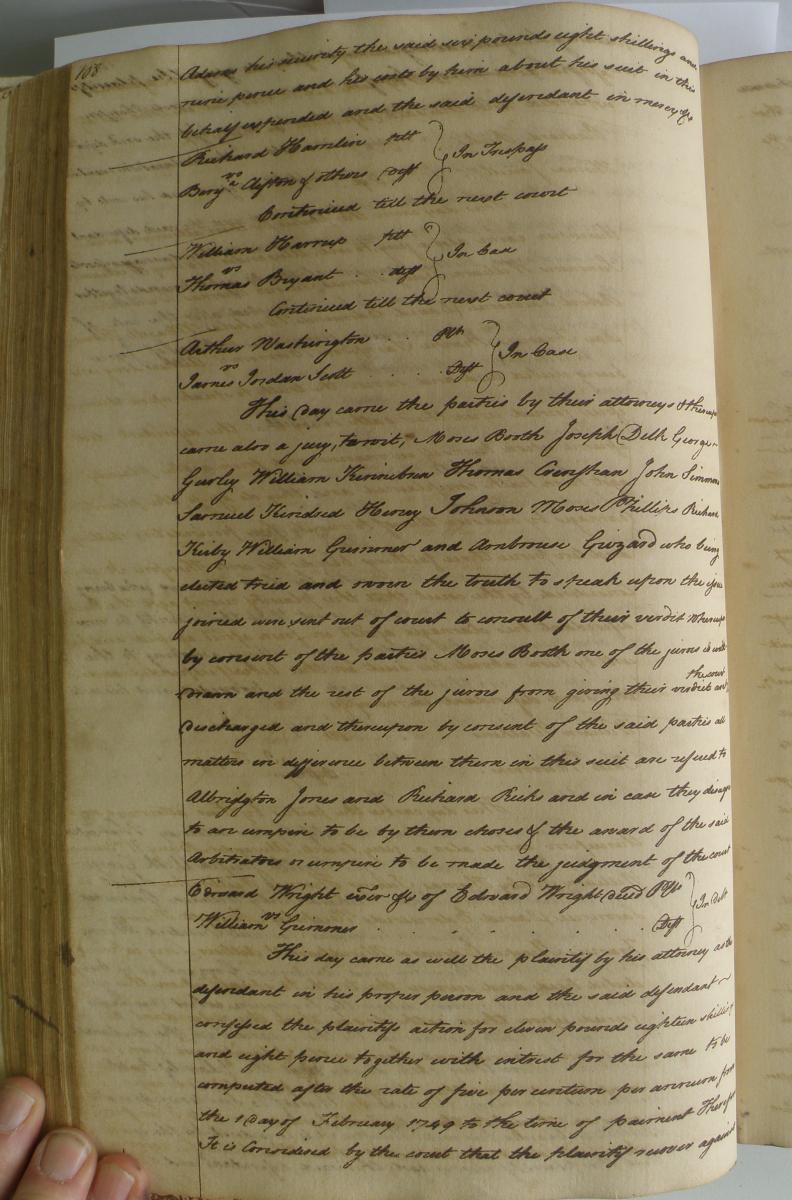 108
Adams his security the said six pounds eight shillings and
nine pence and his costs by him about his suit in this
behalf expended and the said defendant in mercy &c
Richard Hamlin pltt
vs In Trespass
Benja Clifton & others Deft
Continued till the next court
William Harrup pltt
vs In Case
Thomas Bryant . . deft
Continued till the next court
Arthur Washington . . Plt
vs In Case
James Jordan Scott . . . Deft
This day came the parties by their attorneys &
came also a jury, towit, Moses Booth Joseph Delk George
Gurley William Kinnebrun Thomas John Simmons
Samuel Kindred Henry Johnson Moses Phillips Richard
Kirby William Grimmer and Ambrouse Grizard who being
elected tried and sworn the truth to speak upon the issue
joined were sent out of court to consult of their verdit whereup
by consent of the parties Moses Booth one of the jurors is with
the court
drawn and the rest of the jurors from giving their verdict are
discharged and thereupon by consent of the said parties all
matters in difference between them in this suit are refered to
Albridgton Jones and Richard Ricks and in case they disagre
to an umpire to be by them choses & the award of the said
Arbitrators or umpire to be made the judgment of the court
Edward Wright exor &c of Edward Wright deced Plt
vs In Debt
William Grimmer . . . . . . Deft
This day came as well the plaintif by his attorney as the
defendant in his proper person and the said defendant
confessed the plaintifs action for eleven pounds eighteen shillings
and eight pence together with intrest for the same to be
computed after the rate of five per centum per annum from
the 1 day of February 1749 to the time of paiment Therefore
It is Considered by the court that the plaintif recover against